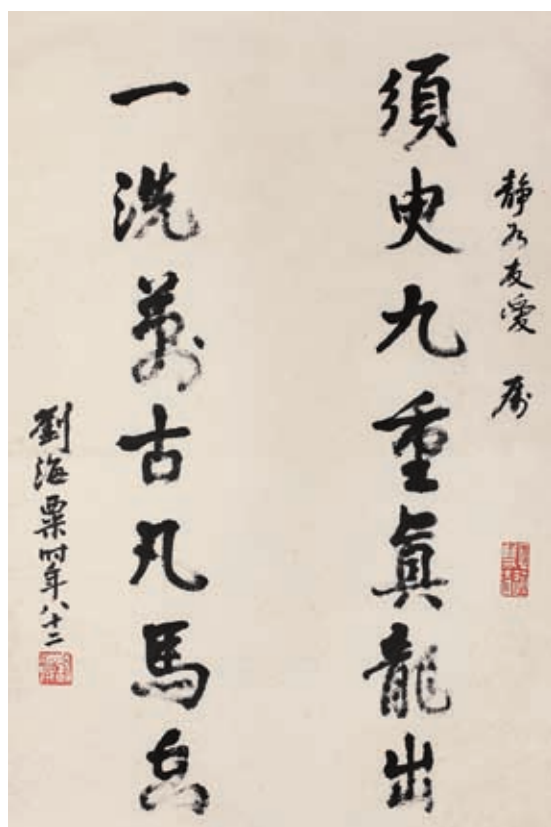 静友愛 属
須臾九重眞龍出
一洗萬古凡馬空
劉海粟时年八十二